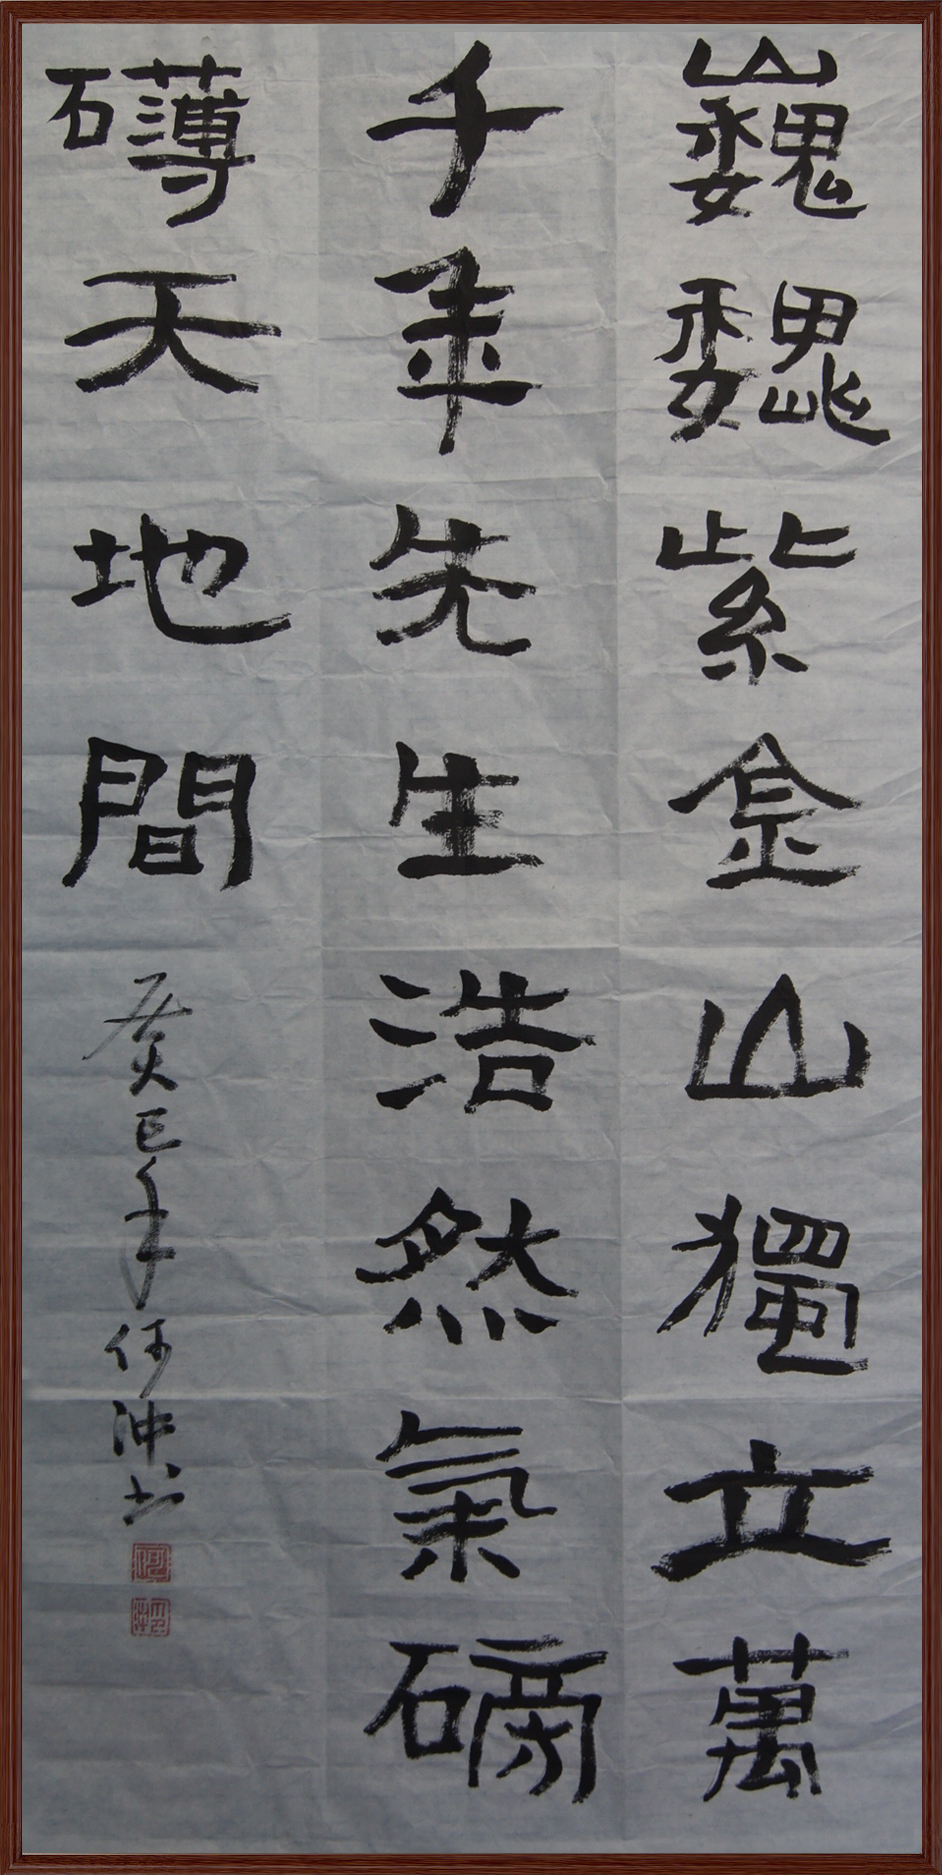 巍巍紫金山獨立萬
千年先生浩然氣磅
礴天地間
癸巳年何沖书